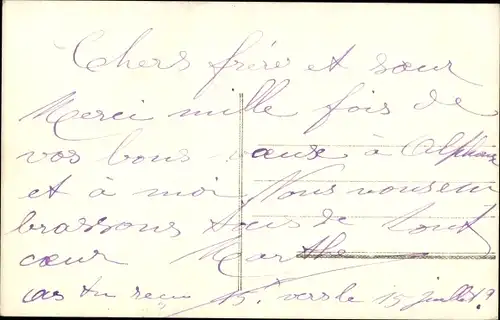 Chers frère et sœur
Merci mille fois de
vos bons vœux à Alphonse
et à moi Nous vous em
brassons tous de tout
cœur Marthe
as tu reçu 15f vers le 15 juillet ?